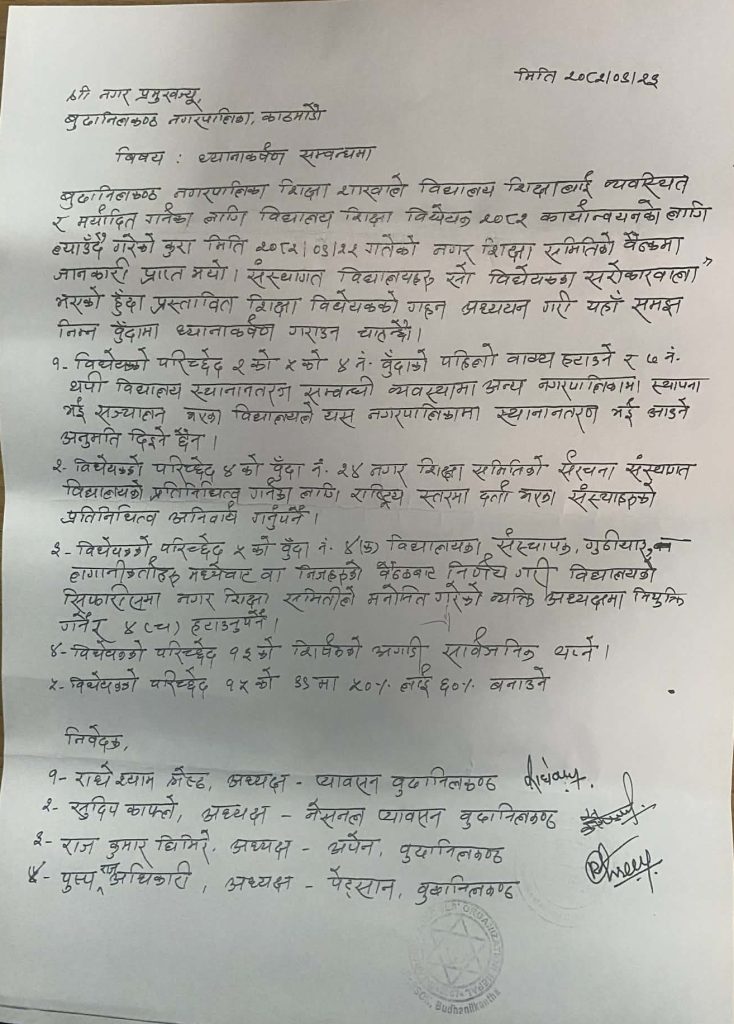 मिति २०८२/०३/२३
श्री नगर प्रमुखज्यू,
बुढानिलकण्ठ नगरपालिका, काठमाडौं
बिषय : ध्यानाकर्षण सम्वन्धमा
बुढानिलकण्ठ नगरपालिका शिक्षा शाखाले विद्यालय शिक्षालाई व्यवस्थित
र मर्यादित गर्नका लागि विद्यालय शिक्षा विधेयक २०८२ कार्यान्वयनको लागि
ल्याउँदै गरेको कुरा मिति २०८२/०३/२२ गतेको नगर शिक्षा समितिको बैठकमा
जानकारी प्राप्त भयो। संस्थागत विद्यालयहरु यसै विधेयकका सरोकारवाला
भएको हुँदा प्रस्तावित शिक्षा विधेयकको गहन अध्ययन गरी यहाँ समक्ष
निम्न बुँदामा ध्यानाकर्षण गराउन चाहन्छौ।
१- विधेयकको परिच्छेद २ को ५ को ४ नं. बुँदाको पहिलो वाक्य हटाउने र ७ नं.
थपी विद्यालय स्थानान्तरण सम्वन्धी व्यवस्थामा अन्य नगरपालिकामा स्थापना
भई सञ्चालन भएका विद्यालयले यस नगरपालिकामा स्थानान्तरण भई आउने
अनुमति दिइने छैन।
२- विधेयकको परिच्छेद ४ को बुँदा नं. २४ नगर शिक्षा समितिको संरचना संस्थागत
विद्यालयको प्रतिनिधित्व गर्नका लागि राष्ट्रिय स्तरमा दर्ता भएका संस्थाहरुको
प्रतिनिधित्व अनिवार्य गर्नुपर्ने।
३- विधेयकको परिच्छेद ५ को बुँदा नं. ४(क) विद्यालयका संस्थापक, गुठीयार,
लगानीकर्ताहरु मध्येबाट वा निजहरुको बैठकबाट निर्णय गरी विद्यालयको
सिफारिसमा नगर शिक्षा समितीले मनोनित गरेको व्यक्ति अध्यक्षमा नियुक्ति
गर्ने र ४(च) हटाउनुपर्ने।
४- विधेयकको परिच्छेद १३ को शिर्षकको अगाडी सार्वजनिक थप्ने।
५- विधेयकको परिच्छेद १५ को ३३ मा ५०% लाई ६०% बनाउने
निवेदक,
१- राधे श्याम श्रेष्ठ, अध्यक्ष - प्याब्सन बुढानिलकण्ठ
२- सुदिप काफ्ले, अध्यक्ष - नेसनल प्याब्सन बुढानिलकण्ठ
३- राज कुमार घिमिरे, अध्यक्ष - अपेन, बुढानिलकण्ठ
४- पुस्प राज अधिकारी, अध्यक्ष - पेट्सान, बुढानिलकण्ठ
ORGANIZATION
Budhanilkantha